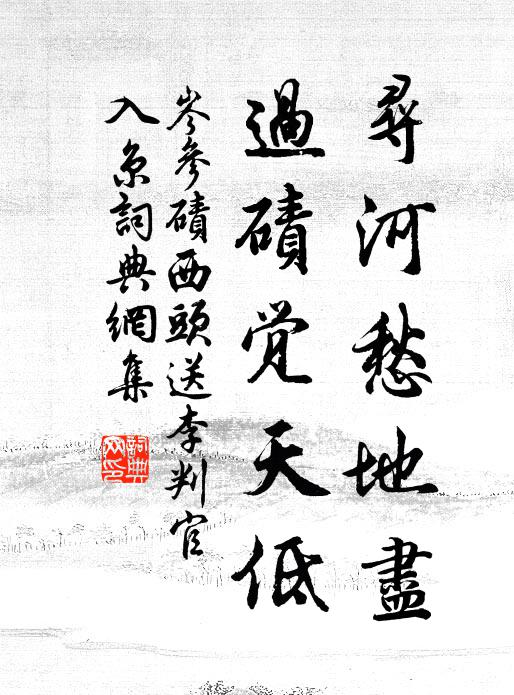 尋河愁地盡
過磧覺天低
岑參磧西頭送李判官
入京詞典網集
詞典网印